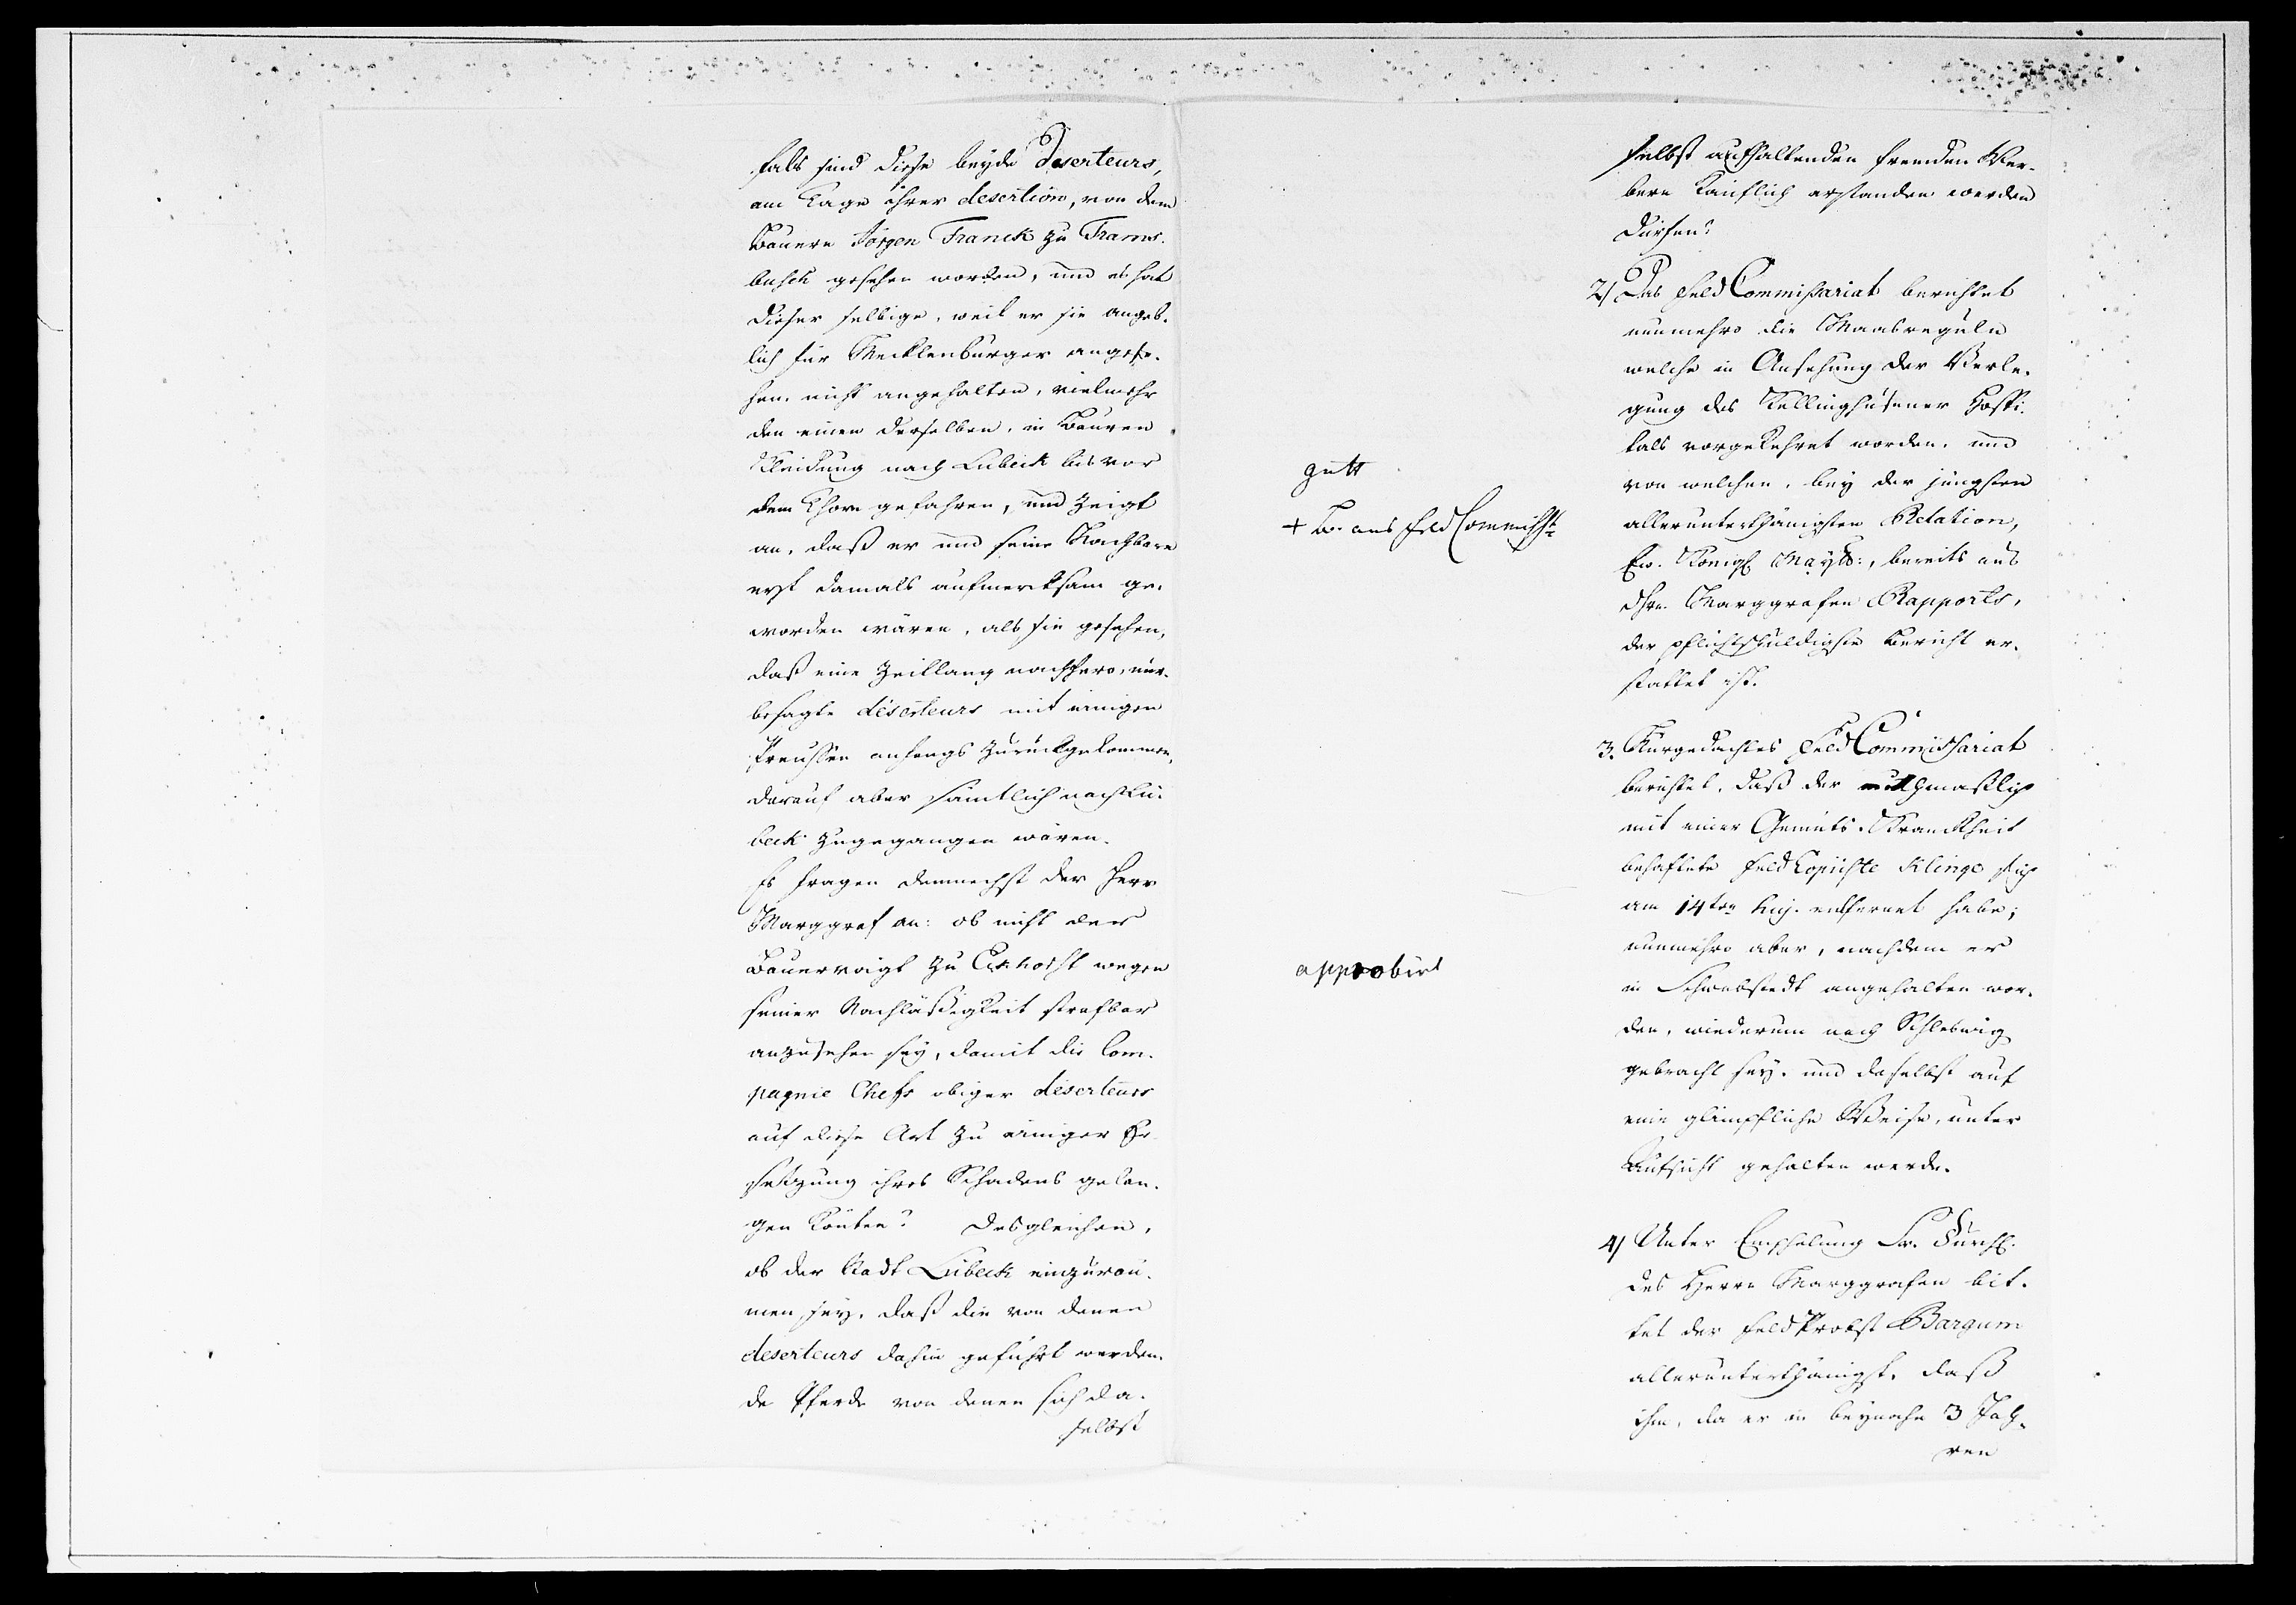 fals sind diese beyde Deserteurs,
am Tage ihrer desertion, von dem
Bauern Jörgen Franck zu Frams-
busch gesehen worden, und es hat
dieser selbige, weil er sie angeb-
lich für Mecklenburger angese-
hen, nicht angehalten, vielmehr
den einen derselben, in Bauren
Kleidung nach Lübeck bis vor
dem Thore gefahren, und zeigt
an, daß er und seine Nachbarn
erst damals aufmerksam ge-
worden wären, als sie gesehen,
daß eine Zeitlang nachhero, nur-
besagte déserteurs mit einigen
Preußen anfangs zurückgekommen,
darauf aber sämtlich nach Lü-
beck zugegangen wären.
Es fragen demnechst der Herr
Marggraf an: ob nicht der
Bauervoigt zu Eckhorst wegen
seiner Nachläßigkeit strafbar
anzusehen sey, damit die Com-
pagnie Chefs obiger déserteurs
auf diese Art zu einiger Er-
setzung ihres Schadens gelan-
gen könten? Desgleichen,
ob der Stadt Lübeck einzuräu-
men sey, daß die von denen
deserteurs dahin geführt werden-
de Pferde von denen sich da-
selbst
selbst aufhaltenden fremden Wer-
bern käuflich erstanden werden
dürfen?
2) Das Feld Commißariat berichtet
nunmehro die Maasreguln
welche in Ansehung der Verle-
gung des Kellinghusener Hospi-
tals vorgekehret worden, und
von welchen, bey der jüngsten
allerunterthänigsten Relation,
Ew. Königl Mayts:, bereits aus
des Hrn. Marggrafen Rapports,
der pflichtschuldigste Bericht er-
stattet ist.
gutt
+ Br. ans Feld Commißt
3. Kurgedachtes Feld Commissariat
berichtet, daß der muthmaßlich
mit einer Gemüts-Kranckheit
behaftete Feld Copiiste Klinge sich
am 14ten huj. entfernet habe;
nunmehro aber, nachdem er
in Schwabstedt angehalten wor-
den, wiederum nach Schleswig
gebracht sey, und daselbst auf
eine glimpfliche Weise, unter
Aufsicht gehalten werde.
approbirt
4) Unter Empfelung Sr. Durchl.
des Herrn Marggrafen bit-
tet der Feld Probst Bargum
allerunterthänigst, daß
ihm, da er in beynahe 3 Jah-
ren